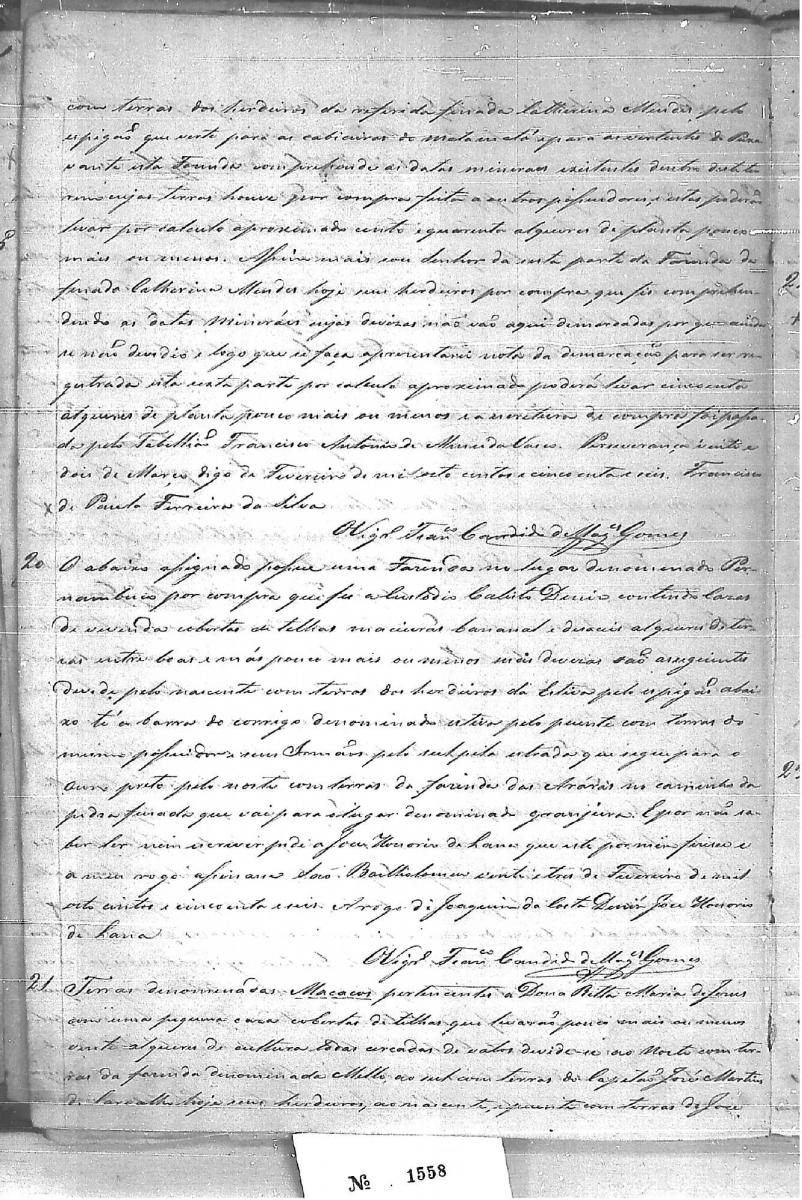 com terras dos herdeiros da referida finada Catherina Mendes pelo
espigaõ que verte para as cabiceiras do e para as vertentes do
vante esta Fazenda comprehende as datas mineraes existentes dentro deste ter
reno cujas terras houve por compra feita a outros possuidores e estes poderaõ
levar por calculo aproximado cento e quarenta alqueires de planta pouco
mais ou menos. Assim mais sou senhor da sesta parte da Fazenda da
finada Catherina Mendes hoje seus herdeiros por compra que fis comprehen-
dendo as datas mineráis cujas devizas não vaõ aqui demarcadas por que ainda
se naõ devidio e logo que se faça apresentarei nota da demarcaçaõ para ser re-
gistrada esta sesta parte por calculo aproximado poderá levar cincoenta
alqueires de planta pouco mais ou menos e a escritura de compra foi passa
da pelo Tabelliaõ Francisco Antonio de Vasco. Perseverança vente e
dois de Março digo de Fevereiro de mil oito centos e cincoenta e seis. Francisco
de Paula Ferreira da Silva
O Vigrº Franco Candido de Mags Gomes
20 O abaixo assignado possue uma Fazenda no lugar denomenado Per-
nambuco por compra que fes a Custodio Calisto Diniz contendo Cazas
de vivenda cobertas de telhas bananal e deseseis alqueires de ter-
ras entre boas e más pouco mais ou menos suas devezas saõ as seguintes
devide pelo nascente com terras dos herdeiros da Estiva pelo espigaõ abai
xo té a barra do corrigo denominado estiva pelo puente com terras do
mesmo possuidor e seus Irmaõs pelo sul pela estrada que segue para o
Ouro preto pelo norte com terras da fazenda das Aráras no caminho da
pedra furada que vai para o lugar denominado granjeira. E por naõ sa-
ber ler nem escrever pedi a Joze Honorio de Lana que este por mim fizesse e
a meu rogo assinasse. Saõ Bartholomeu vente e tres de Fevereiro de mil
oito centos e cincoenta e seis. A rogo de Joaquim da Costa Diniz Joze Honorio
de Lana
O Vigrº Franco Candido de Mags Gomes
21 Terras denomenádas Macacos pertencentes a Dona Ritta Maria de Jesus
com uma pequena caza cobertas de telhas que levaraõ pouco mais ou menos
vente alqueires de cultura todas cercadas de valos devide-se ao Norte com ter-
ras da fazenda denominada Mello, ao sul com terras do Capitaõ José Martins
de Carvalho hoje seus herdeiros, ao nascente, e puente com terras de José
Nº 1558